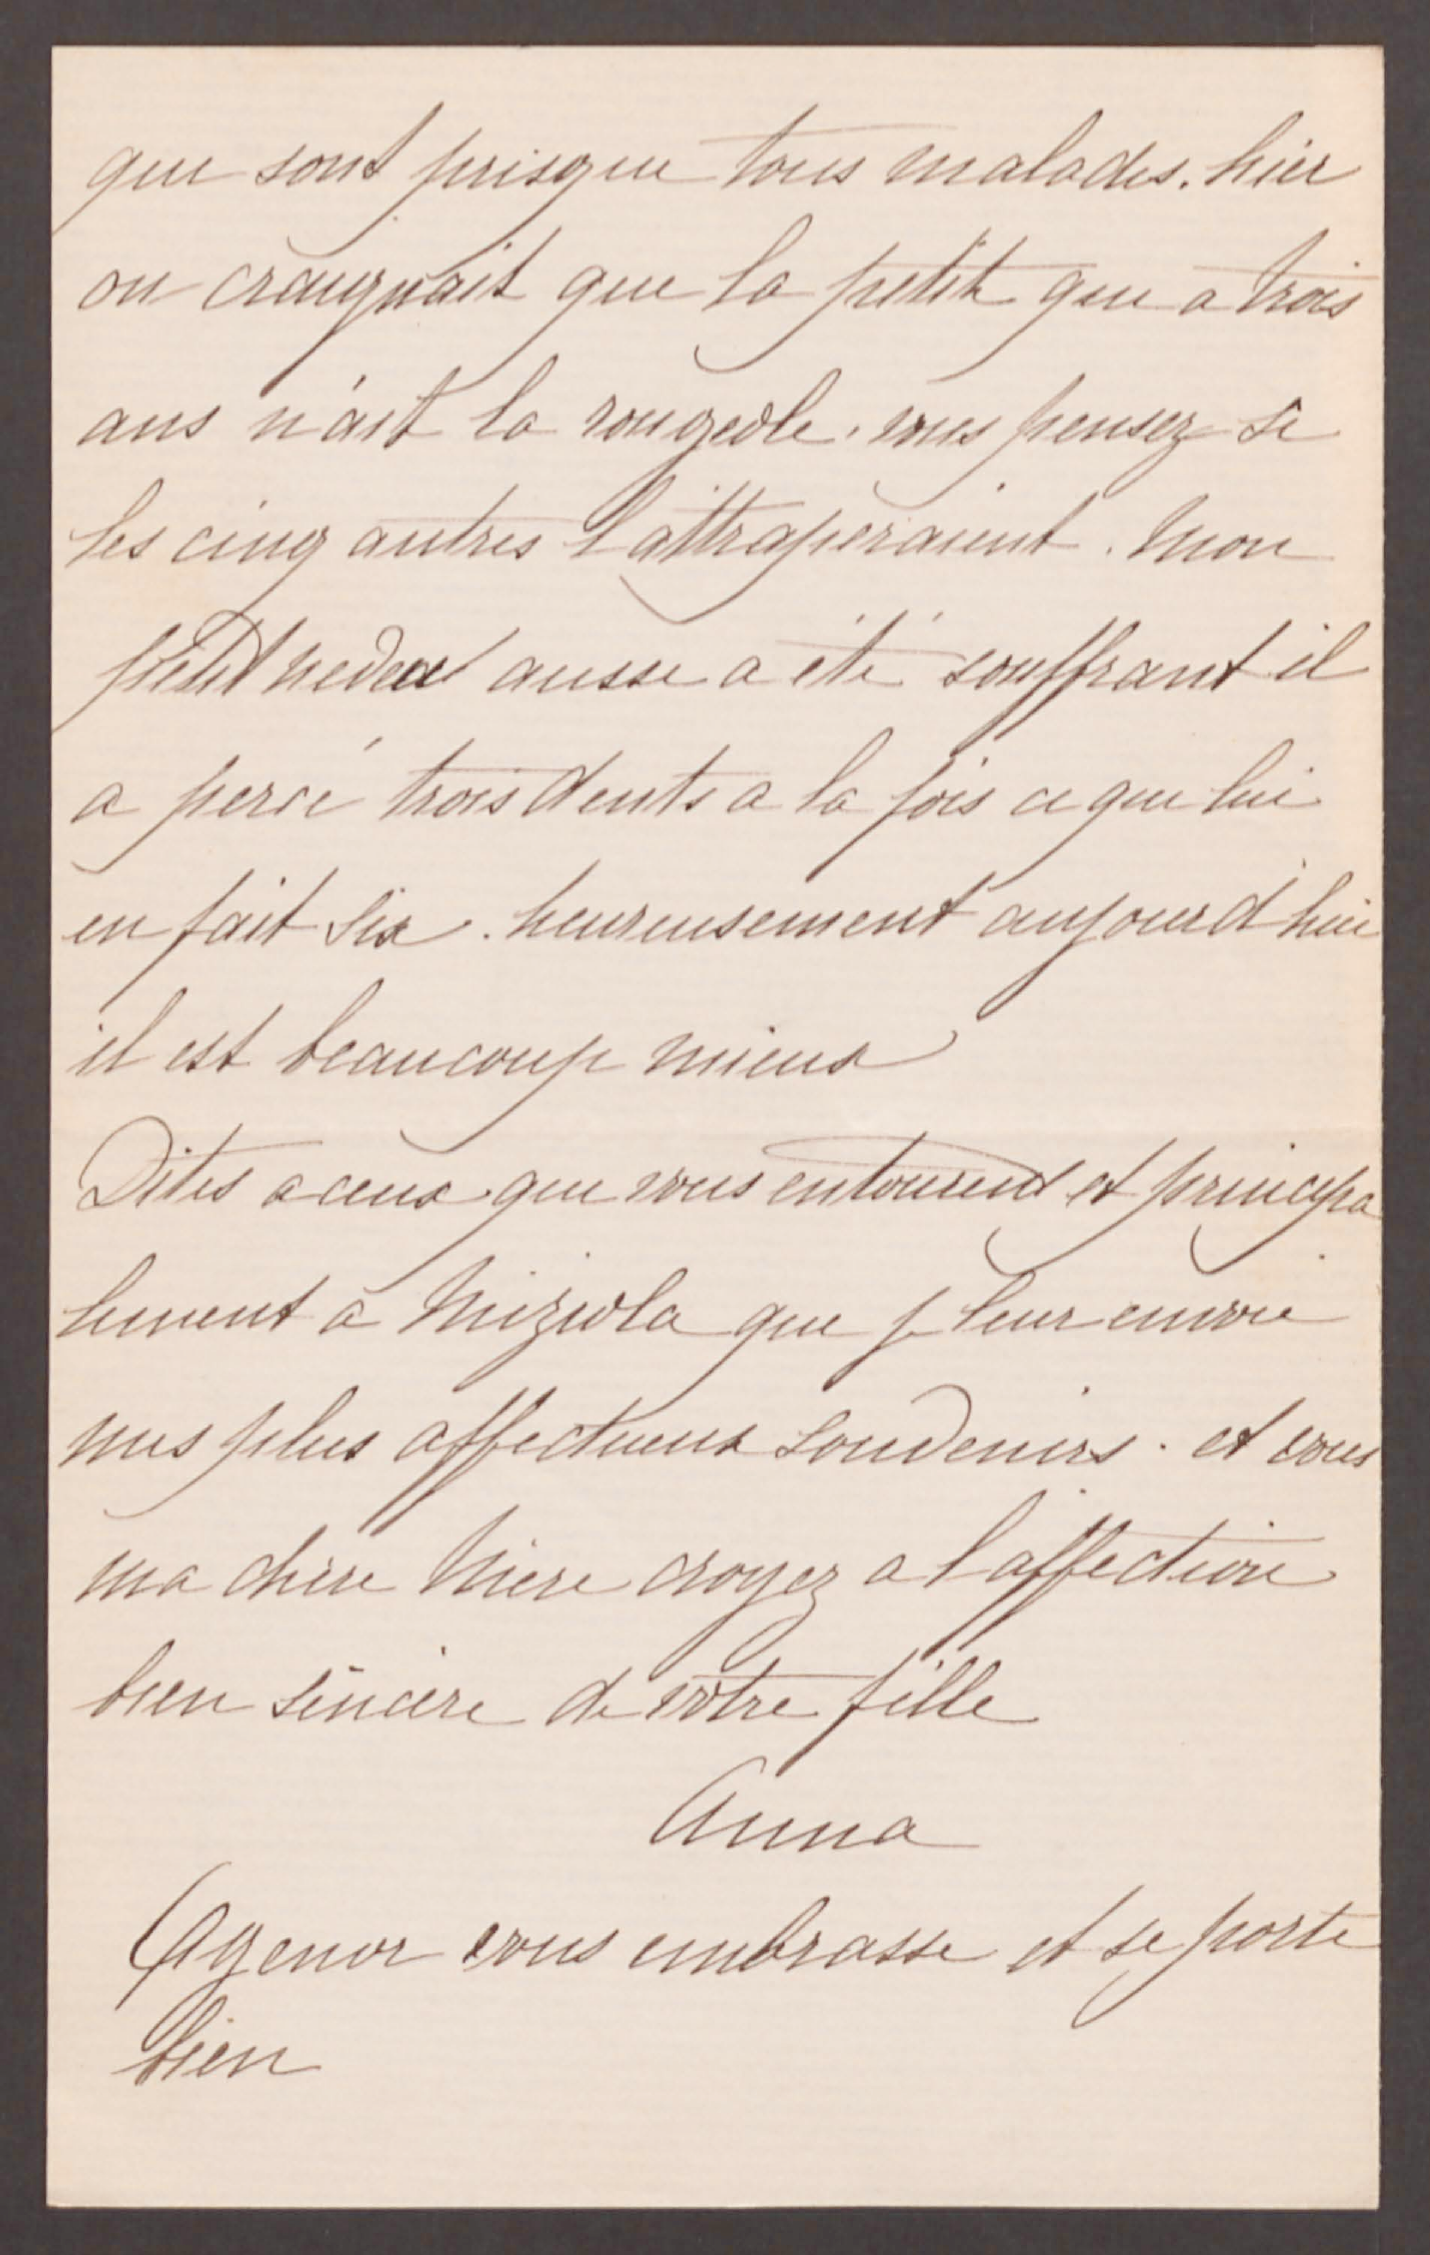 qui sont presque tous malades. hier
on craignait que la petite qui a trois
ans n'ait la rougeole. vous pensez si
les cinq autres l'attraperaient. Mon
petit neveu aussi a été souffrant il
a percé trois dents a la fois ce qui lui
en fait six. heureusement aujourd'hui
il est beaucoup mieux
Dites a ceux qui vous entourent et principa
lement a Miziola que je leur envoie
mes plus affectueux souvenirs. et vous
ma chère Mère croyez a l'affection
bien sincère de votre fille
Anna
Agenor vous embrasse et se porte
bien